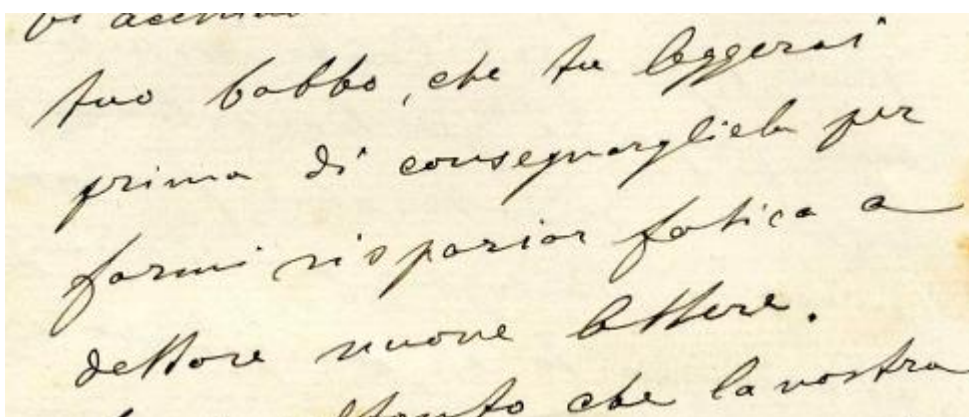 tuo babbo, che tu leggerai
prima di consegnargliela per
farmi rispariar fatica a
dettare nuove lettere.
che la vostra